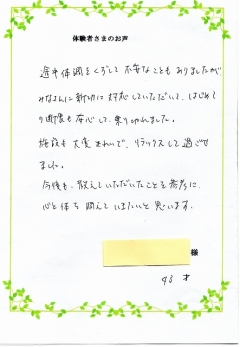 体験者さまのお声
途中体調をくずして不安なこともありましたが
みなさんに親切に対応していただいて、はじめて
の断食も安心して乗り切れました。
施設も大変きれいで、リラックスして過ごせ
ました。
今後も、教えていただいたことを参考に
心と体を調えていきたいと思います。
様
才